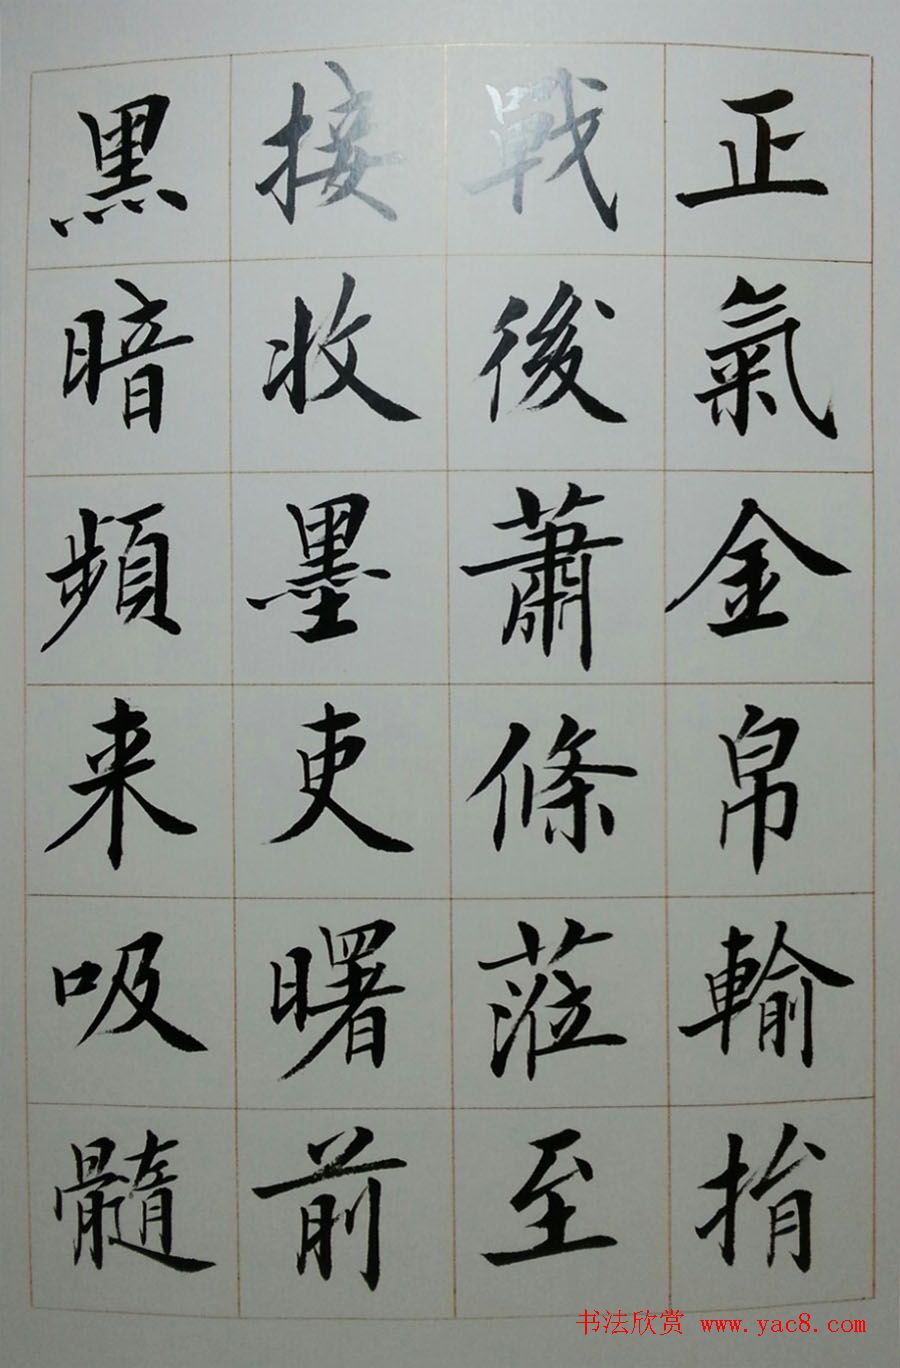 正氣金帛輸捐
戰後蕭條蒞至
接收墨吏曙前
黑暗頻来吸髓
书法欣赏 www.yac8.com